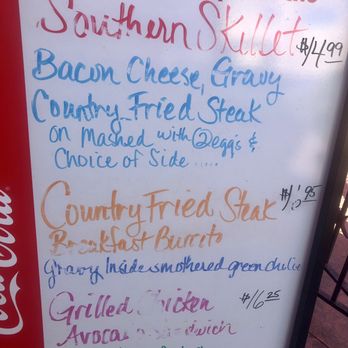 Southern Skillet $14.99
Bacon Cheese, Gravy
Country Fried Steak
on Mashed with ② eggs &
Choice of Side .....
Country Fried Steak
Breakfast Burrito
Gravy Inside smothered green chile
Grilled Chicken $16.25
Avocado Sandwich
Coca-Cola